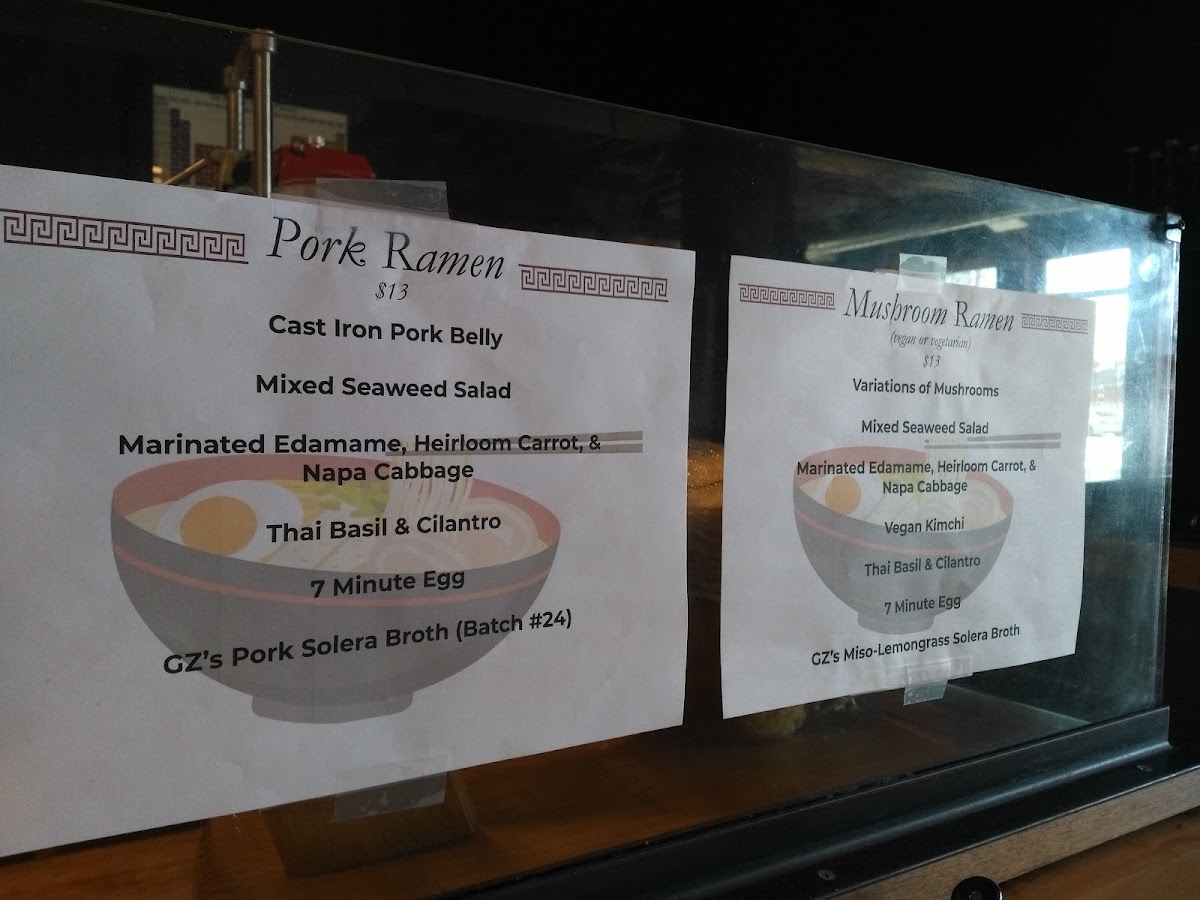 Pork Ramen
$13
Cast Iron Pork Belly
Mixed Seaweed Salad
Marinated Edamame, Heirloom Carrot, &
Napa Cabbage
Thai Basil & Cilantro
7 Minute Egg
GZ's Pork Solera Broth (Batch #24)
Mushroom Ramen
(vegan or vegetarian)
$13
Variations of Mushrooms
Mixed Seaweed Salad
Marinated Edamame, Heirloom Carrot, &
Napa Cabbage
Vegan Kimchi
Thai Basil & Cilantro
7 Minute Egg
GZ's Miso-Lemongrass Solera Broth